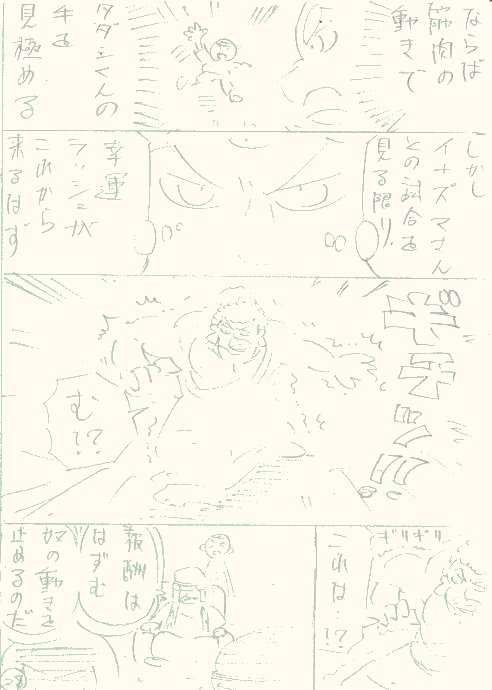 ならば
筋肉の
動きで
タダシくんの
手を
見極める
しかし
イナズマさん
との試合を
見る限り
幸運
ラッシュが
これから
来るはず
む!?
ギリギリ
これは…!?
報酬は
はずむ
奴の動きを
止めるのだ